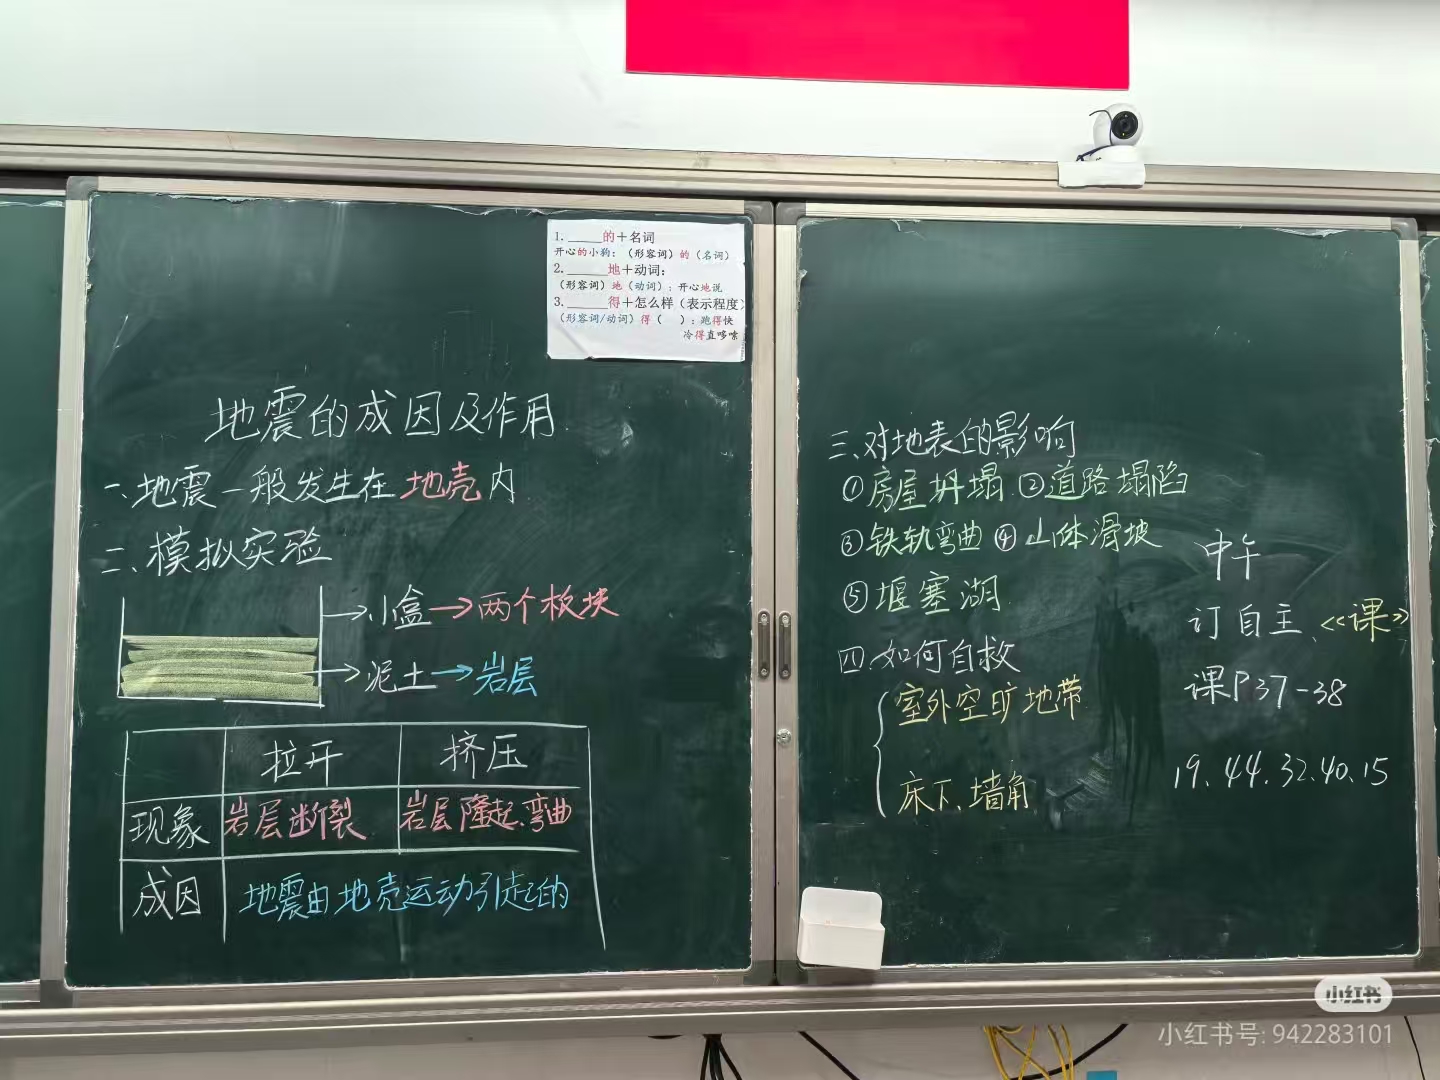 1.______的+名词
开心的小狗：（形容词）的（名词）
2.______地+动词：
（形容词）地（动词）：开心地说
3.______得+怎么样（表示程度）
（形容词/动词）得（ ）：跑得快
冷得直哆嗦
地震的成因及作用
一、地震一般发生在地壳内
二、模拟实验
→小盒→两个板块
→泥土→岩层
拉开 挤压
现象 岩层断裂 岩层隆起、弯曲
成因 地震由地壳运动引起的
三、对地表的影响
①房屋坍塌 ②道路塌陷
③铁轨弯曲 ④山体滑坡
⑤堰塞湖
四、如何自救
室外空旷地带
床下、墙角
中午
订自主、《课》
课P37-38
19、44、32、40、15
小红书
小红书号: 942283101